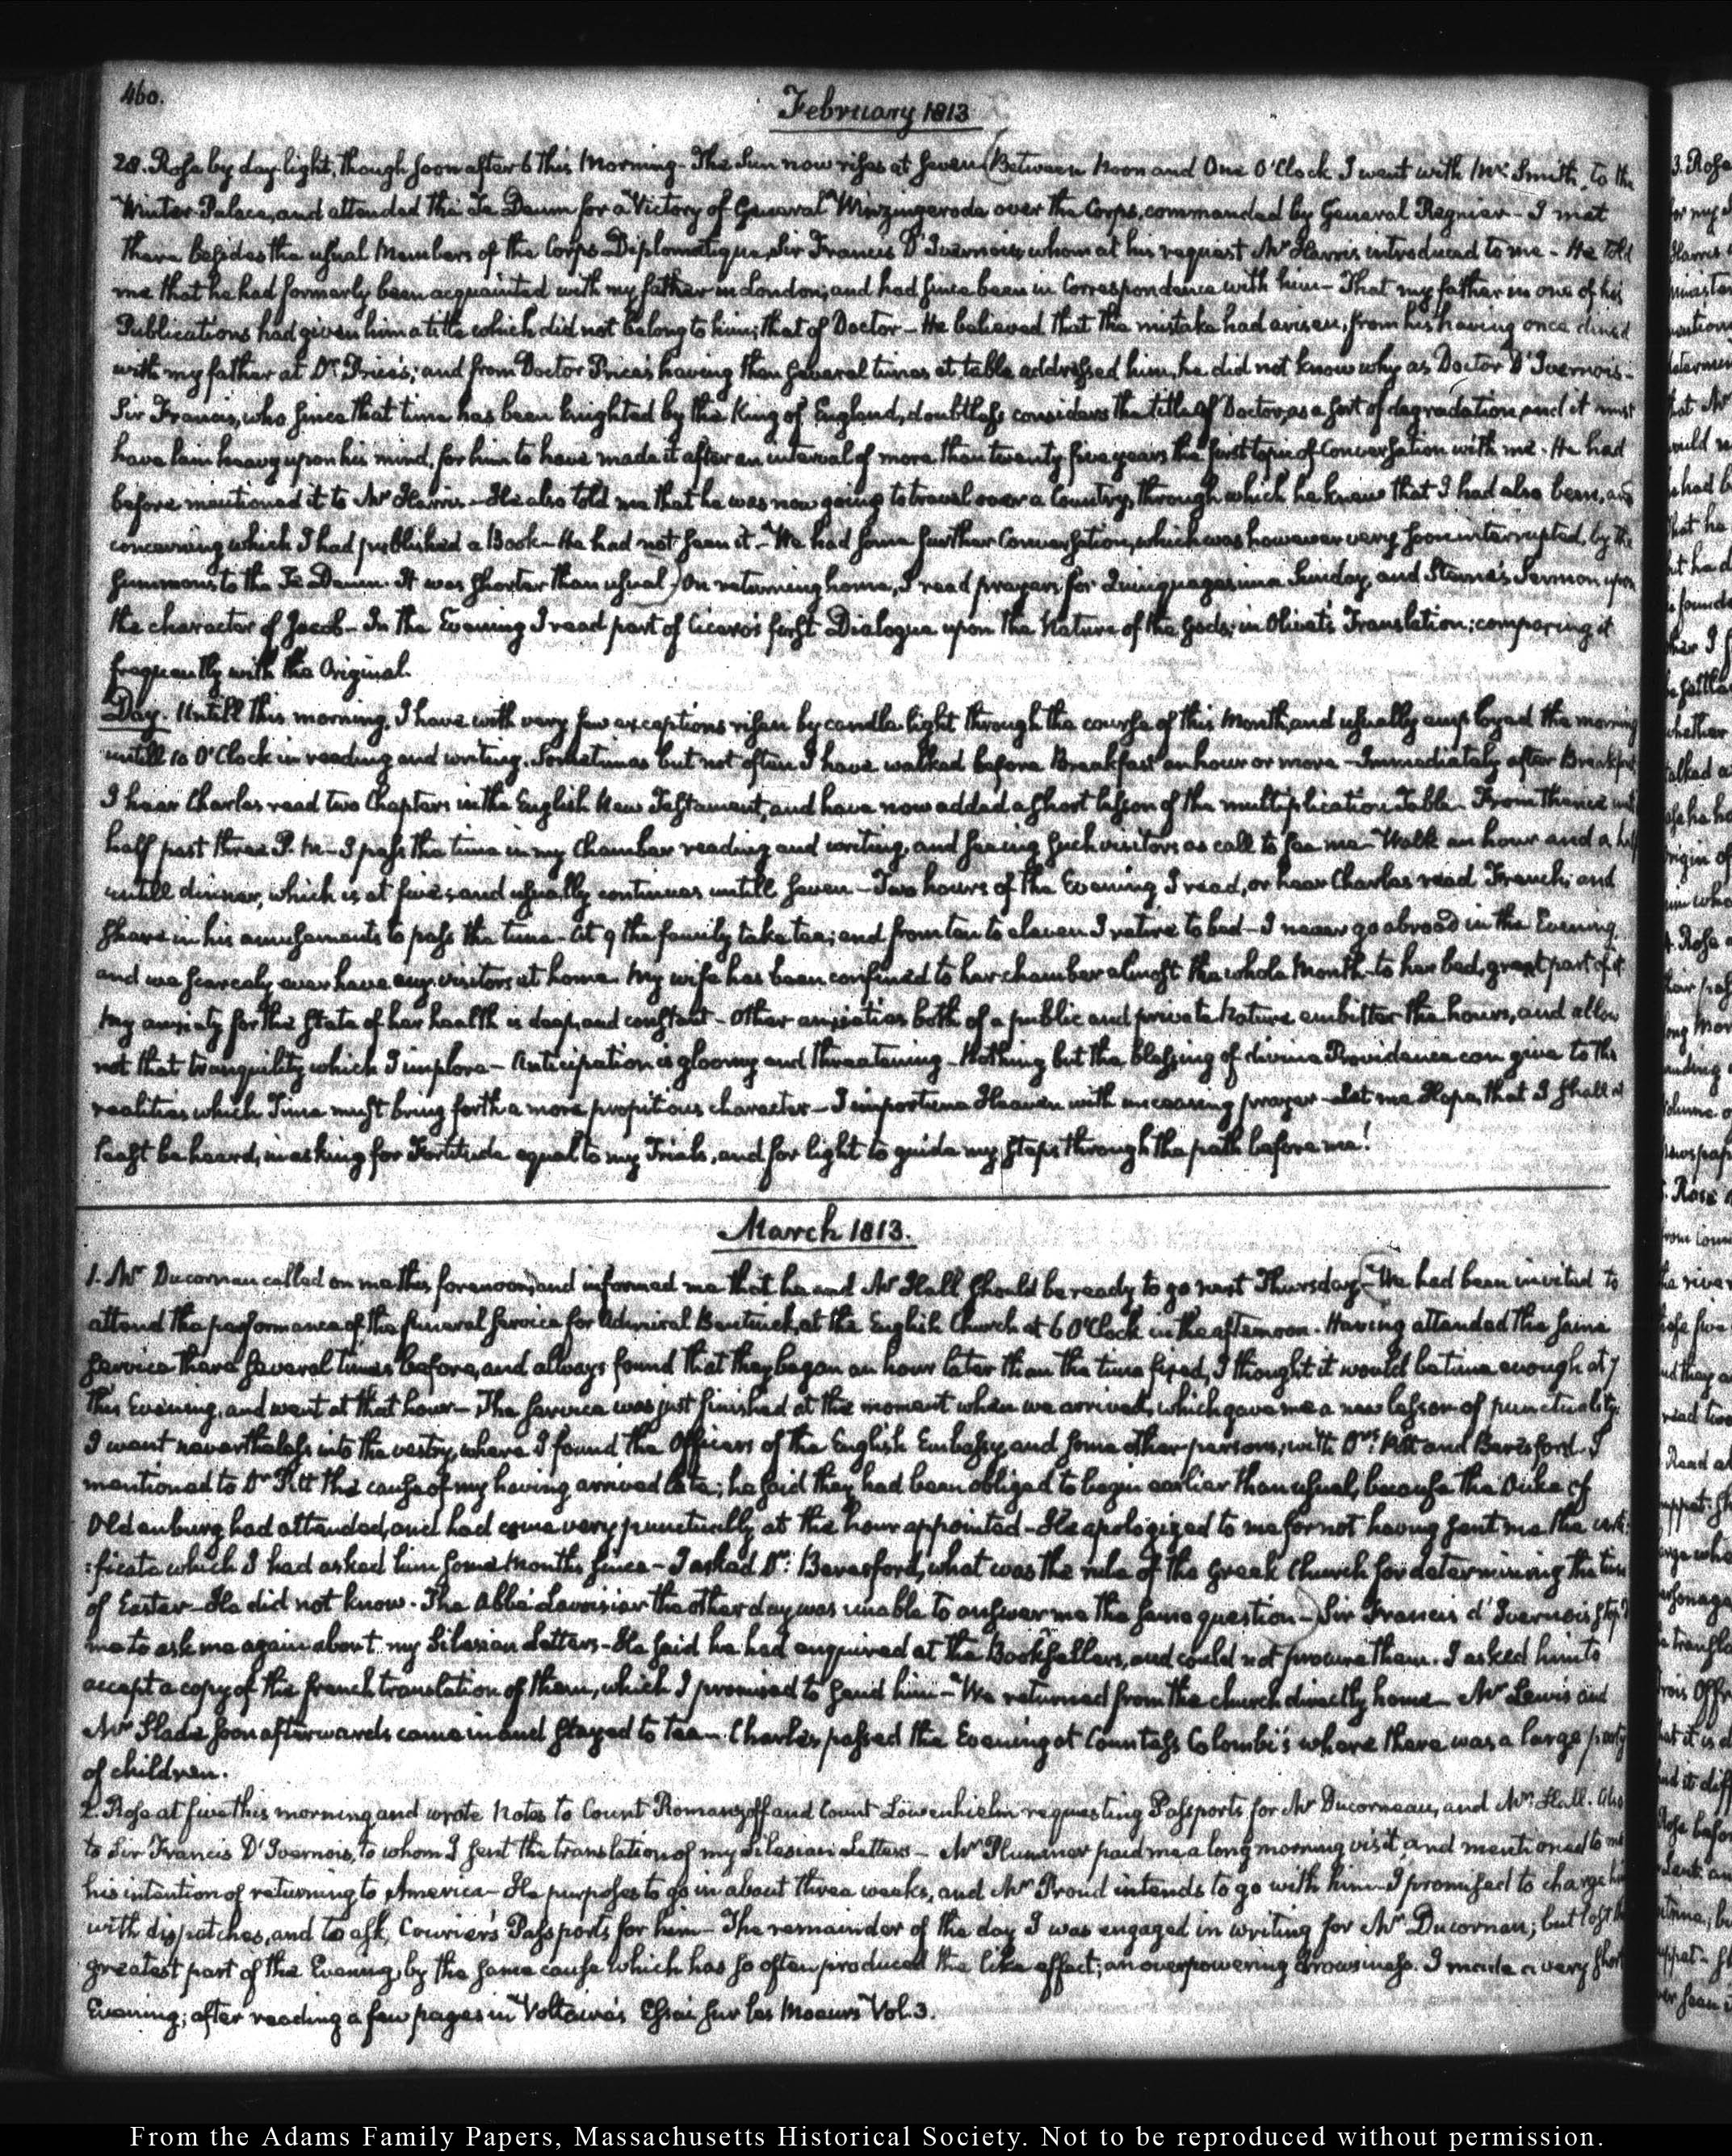 460.
February 1813
28. Rose by day-light, though soon after 6 this Morning. The Sun now rises at seven (Between Noon and One O'Clock I went with Mr. Smith, to the
Winter Palace, and attended the Te Deum for a Victory of General Winzingerode over the Corps, commanded by General Regnier - I met
there besides the usual Members of the Corps Diplomatique, Sir Francis D'Ivernois, whom at his request Mr Harris introduced to me - He told
me that he had formerly been acquainted with my father in London, and had since been in Correspondence with him - That my father in one of his
Publications had given him a title which did not belong to him; that of Doctor - He believed that the mistake had arisen, from his having once dined
with my father at Dr. Price's; and from Doctor Price's having then several times at table addressed him, he did not know why as Doctor D'Ivernois -
Sir Francis, who since that time has been knighted by the King of England, doubtless considers the title of Doctor, as a sort of degradation, and it must
have lain heavy upon his mind, for him to have made it after an interval of more than twenty five years the first topic of Conversation with me - He had
before mentioned it to Mr Harris - He also told me that he was now going to travel over a Country, through which he knew that I had also been, and
concerning which I had published a Book - He had not seen it - We had some further Conversation, which was however very soon interrupted, by the
summons to the Te Deum. It was shorter than usual) On returning home, I read prayers for Quinquagesima Sunday, and Sterne's Sermon upon
the character of Jacob - In the Evening I read part of Cicero's first Dialogue upon the Nature of the Gods; in Olivet's Translation; comparing it
frequently with the Original.
Day. Untill this morning, I have with very few exceptions risen by candle-light through the course of this Month, and usually employed the morning
untill 10 O'Clock in reading and writing. Sometimes but not often I have walked before Breakfast an hour or more - Immediately after Breakfast
I hear Charles read two Chapters in the English New Testament, and have now added a short lesson of the multiplication Table - From thence until
half past three P.M - I pass the time in my Chamber reading and writing, and seeing such visitors as call to see me - Walk an hour and a half
untill dinner, which is at five; and usually continues untill seven - Two hours of the Evening, I read, or hear Charles read French; and
share in his amusements to pass the time - At 9 the family take tea; and from ten to eleven I retire to bed - I never go abroad in the Evening
and we scarcely ever have any visitors at home. My wife has been confined to her chamber almost the whole Month - to her bed, great part of it
My anxiety for the state of her health is deep and constant - Other anxieties both of a public and private Nature embitter the hours, and allow
not that tranquility which I implore - Anticipation is gloomy and threatening - Nothing but the blessing of divine Providence can give to the
realities which Time must bring forth a more propitious character - I importune Heaven with unceasing prayer - Let me Hope, that I shall at
least be heard, in asking for Fortitude equal to my Trials, and for light to guide my steps through the path before me!
March 1813.
1. Mr Ducornau called on me this forenoon, and informed me that he and Mr Hall, should be ready to go next Thursday (We had been invited to
attend the performance of the funeral service for Admiral Bentinck, at the English Church at 6 O'Clock in the afternoon. Having attended the same
service there several times before, and always found that they began an hour later than the time fixed, I thought it would be time enough at 7
this Evening, and went at that hour - The service was just finished at the moment when we arrived, which gave me a new lesson of punctuality.
I went nevertheless into the vestry, where I found the Officers of the English Embassy, and some other persons, with Drs. Pitt and Beresford - I
mentioned to Dr Pitt the cause of my having arrived late; he said they had been obliged to begin earlier than usual, because the Duke of
Oldenburg had attended, and had come very punctually at the hour appointed - He apologized to me for not having sent me the certi-
:ficate which I had asked him some Months since - I asked Dr. Beresford, what was the rule of the Greek Church for determining the time
of Easter - He did not know. The Abbé Lavoisier the other day was unable to answer me the same question -) Sir Francis d'Ivernois stop'd
me to ask me again about my Silesian Letters - He said he had enquired at the Booksellers, and could not procure them. I asked him to
accept a copy of the french translation of them, which I promised to send him - We returned from the church directly home - Mr Lewis and
Mr Slade soon afterwards came in and stayed to tea - Charles passed the Evening at Countess Colombi's where there was a large party
of children.
2. Rose at five this morning, and wrote Notes to Count Romanzoff and Count Löwenhielm requesting Passports for Mr Ducorneau, and Mr. Hall. Also
to Sir Francis D'Ivernois, to whom I sent the translation of my Silesian Letters - Mr Plummer paid me a long morning visit and mentioned to me
his intention of returning to America - He purposes to go in about three weeks, and Mr Proud intends to go with him - I promised to charge him
with dispatches, and to ask, Courier's Passports for him - The remainder of the day I was engaged in writing for Mr Ducornau; but lost the
greatest part of the Evening, by the same cause which has so often produced the like effect; an overpowering drowsiness. I made a very short
Evening; after reading a few pages in Voltaire's Essai sur les Moeurs Vol. 3.
From the Adams Family Papers, Massachusetts Historical Society. Not to be reproduced without permission.